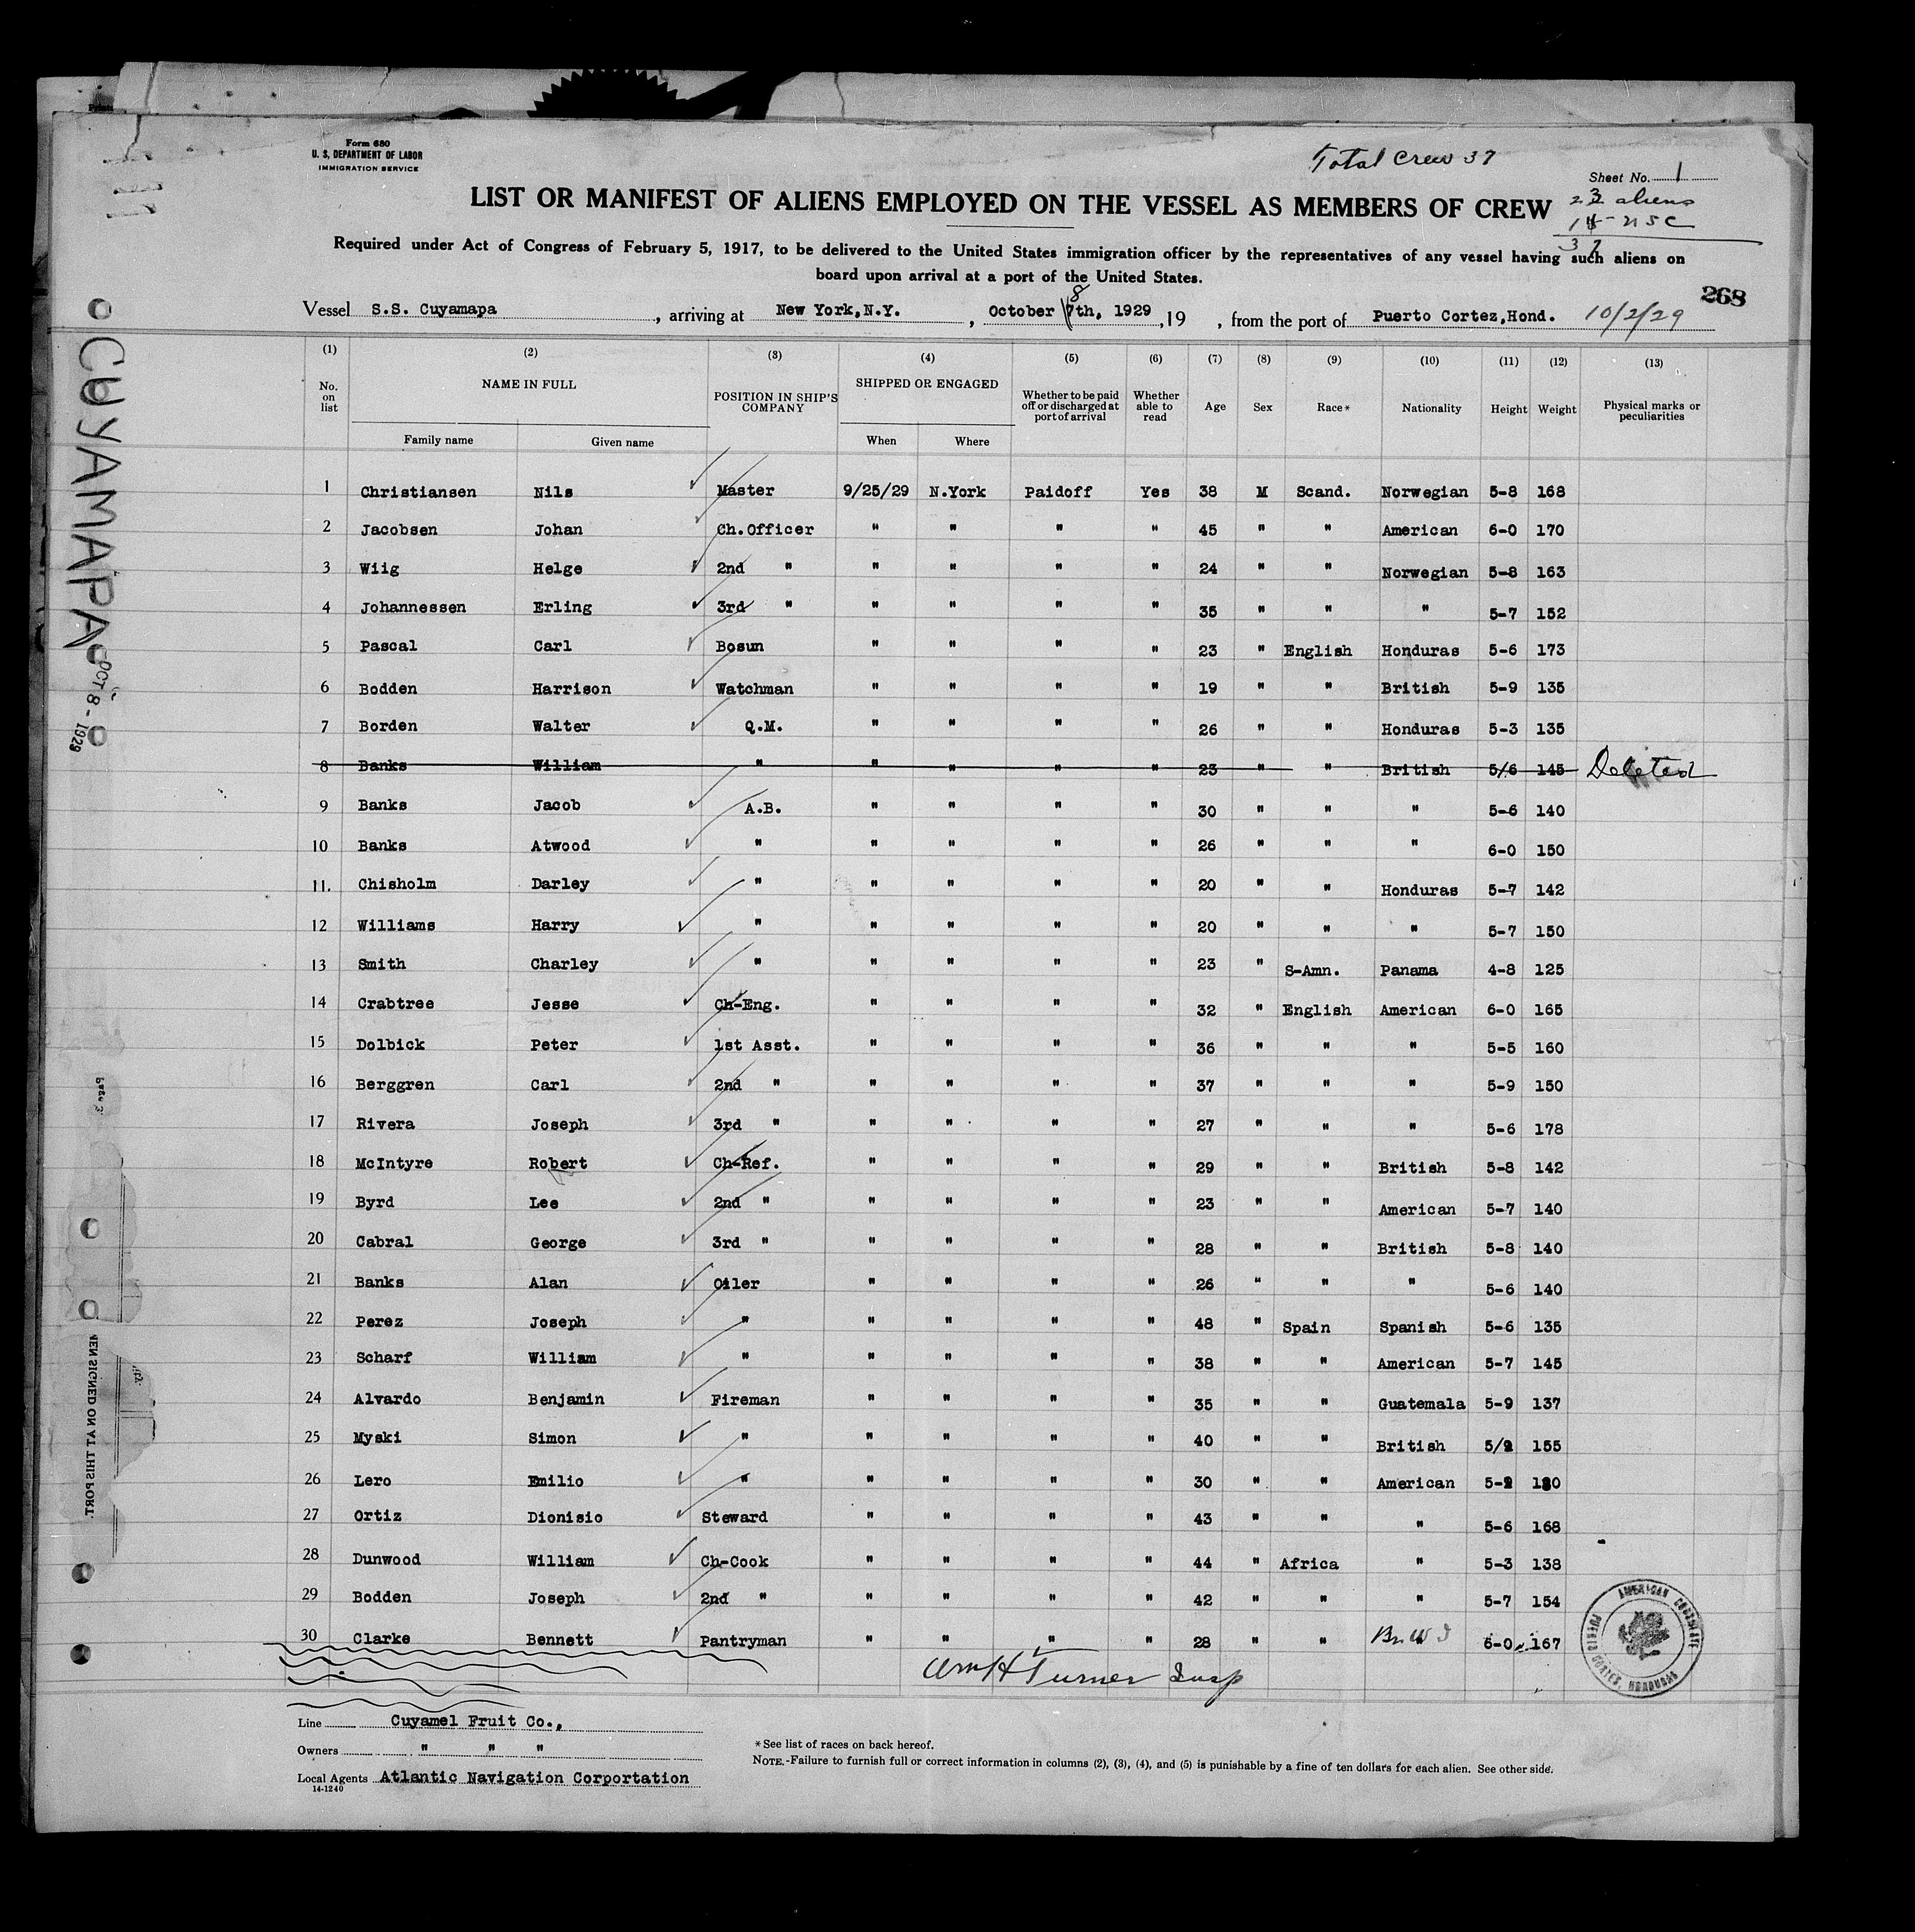 Form 680
U. S. DEPARTMENT OF LABOR
IMMIGRATION SERVICE
Total Crew 37
Sheet No. 1
LIST OR MANIFEST OF ALIENS EMPLOYED ON THE VESSEL AS MEMBERS OF CREW
aliens
37
Required under Act of Congress of February 5, 1917, to be delivered to the United States immigration officer by the representatives of any vessel having such aliens on
board upon arrival at a port of the United States.
268
Vessel S.S. Cuyamapa, arriving at New York,N.Y., October 8 7th, 1929, 19 , from the port of Puerto Cortez,Hond. 10/2/29
(1) (2) (3) (4) (5) (6) (7) (8) (9) (10) (11) (12) (13)
No. on list NAME IN FULL POSITION IN SHIP'S COMPANY SHIPPED OR ENGAGED Whether to be paid off or discharged at port of arrival Whether able to read Age Sex Race* Nationality Height Weight Physical marks or peculiarities
Family name Given name When Where
1 Christiansen Nils Master 9/25/29 N.York Paidoff Yes 38 M Scand. Norwegian 5-8 168
2 Jacobsen Johan Ch.Officer " " " " 45 " " American 6-0 170
3 Wiig Helge 2nd " " " " " 24 " " Norwegian 5-8 163
4 Johannessen Erling 3rd " " " " " 35 " " " 5-7 152
5 Pascal Carl Bosun " " " " 23 " English Honduras 5-6 173
6 Bodden Harrison Watchman " " " " 19 " " British 5-9 135
7 Borden Walter Q.M. " " " " 26 " " Honduras 5-3 135
8 Banks William " " " " " 23 " " British 5/6 145 Deleted
9 Banks Jacob A.B. " " " " 30 " " " 5-6 140
10 Banks Atwood " " " " " 26 " " " 6-0 150
11. Chisholm Darley " " " " " 20 " " Honduras 5-7 142
12 Williams Harry " " " " " 20 " " " 5-7 150
13 Smith Charley " " " " " 23 " S-Amn. Panama 4-8 125
14 Crabtree Jesse Ch-Eng. " " " " 32 " English American 6-0 165
15 Dolbick Peter 1st Asst. " " " " 36 " " " 5-5 160
16 Berggren Carl 2nd " " " " " 37 " " " 5-9 150
17 Rivera Joseph 3rd " " " " " 27 " " " 5-6 178
18 McIntyre Robert Ch-Ref. " " " " 29 " " British 5-8 142
19 Byrd Lee 2nd " " " " " 23 " " American 5-7 140
20 Cabral George 3rd " " " " " 28 " " British 5-8 140
21 Banks Alan Oiler " " " " 26 " " " 5-6 140
22 Perez Joseph " " " " " 48 " Spain Spanish 5-6 135
23 Scharf William " " " " " 38 " " American 5-7 145
24 Alvardo Benjamin Fireman " " " " 35 " " Guatemala 5-9 137
25 Myski Simon " " " " " 40 " " British 5/2 155
26 Lero Emilio " " " " " 30 " " American 5-2
27 Ortiz Dionisio Steward " " " " 43 " " " 5-6 168
28 Dunwood William Ch-Cook " " " " 44 " Africa " 5-3 138
29 Bodden Joseph 2nd " " " " " 42 " " " 5-7 154
30 Clarke Bennett Pantryman " " " " 28 " " Br. W I 6-0 167
Wm H Turner Insp
AMERICAN CONSULATE PUERTO CORTES, HONDURAS
Line Cuyamel Fruit Co.,
Owners " " "
Local Agents Atlantic Navigation Corportation
14-1240
*See list of races on back hereof.
NOTE.-Failure to furnish full or correct information in columns (2), (3), (4), and (5) is punishable by a fine of ten dollars for each alien. See other side.
CUYAMAPA
OCT 8 - 1929
Page 3.
MEN SIGNED ON AT THIS PORT.